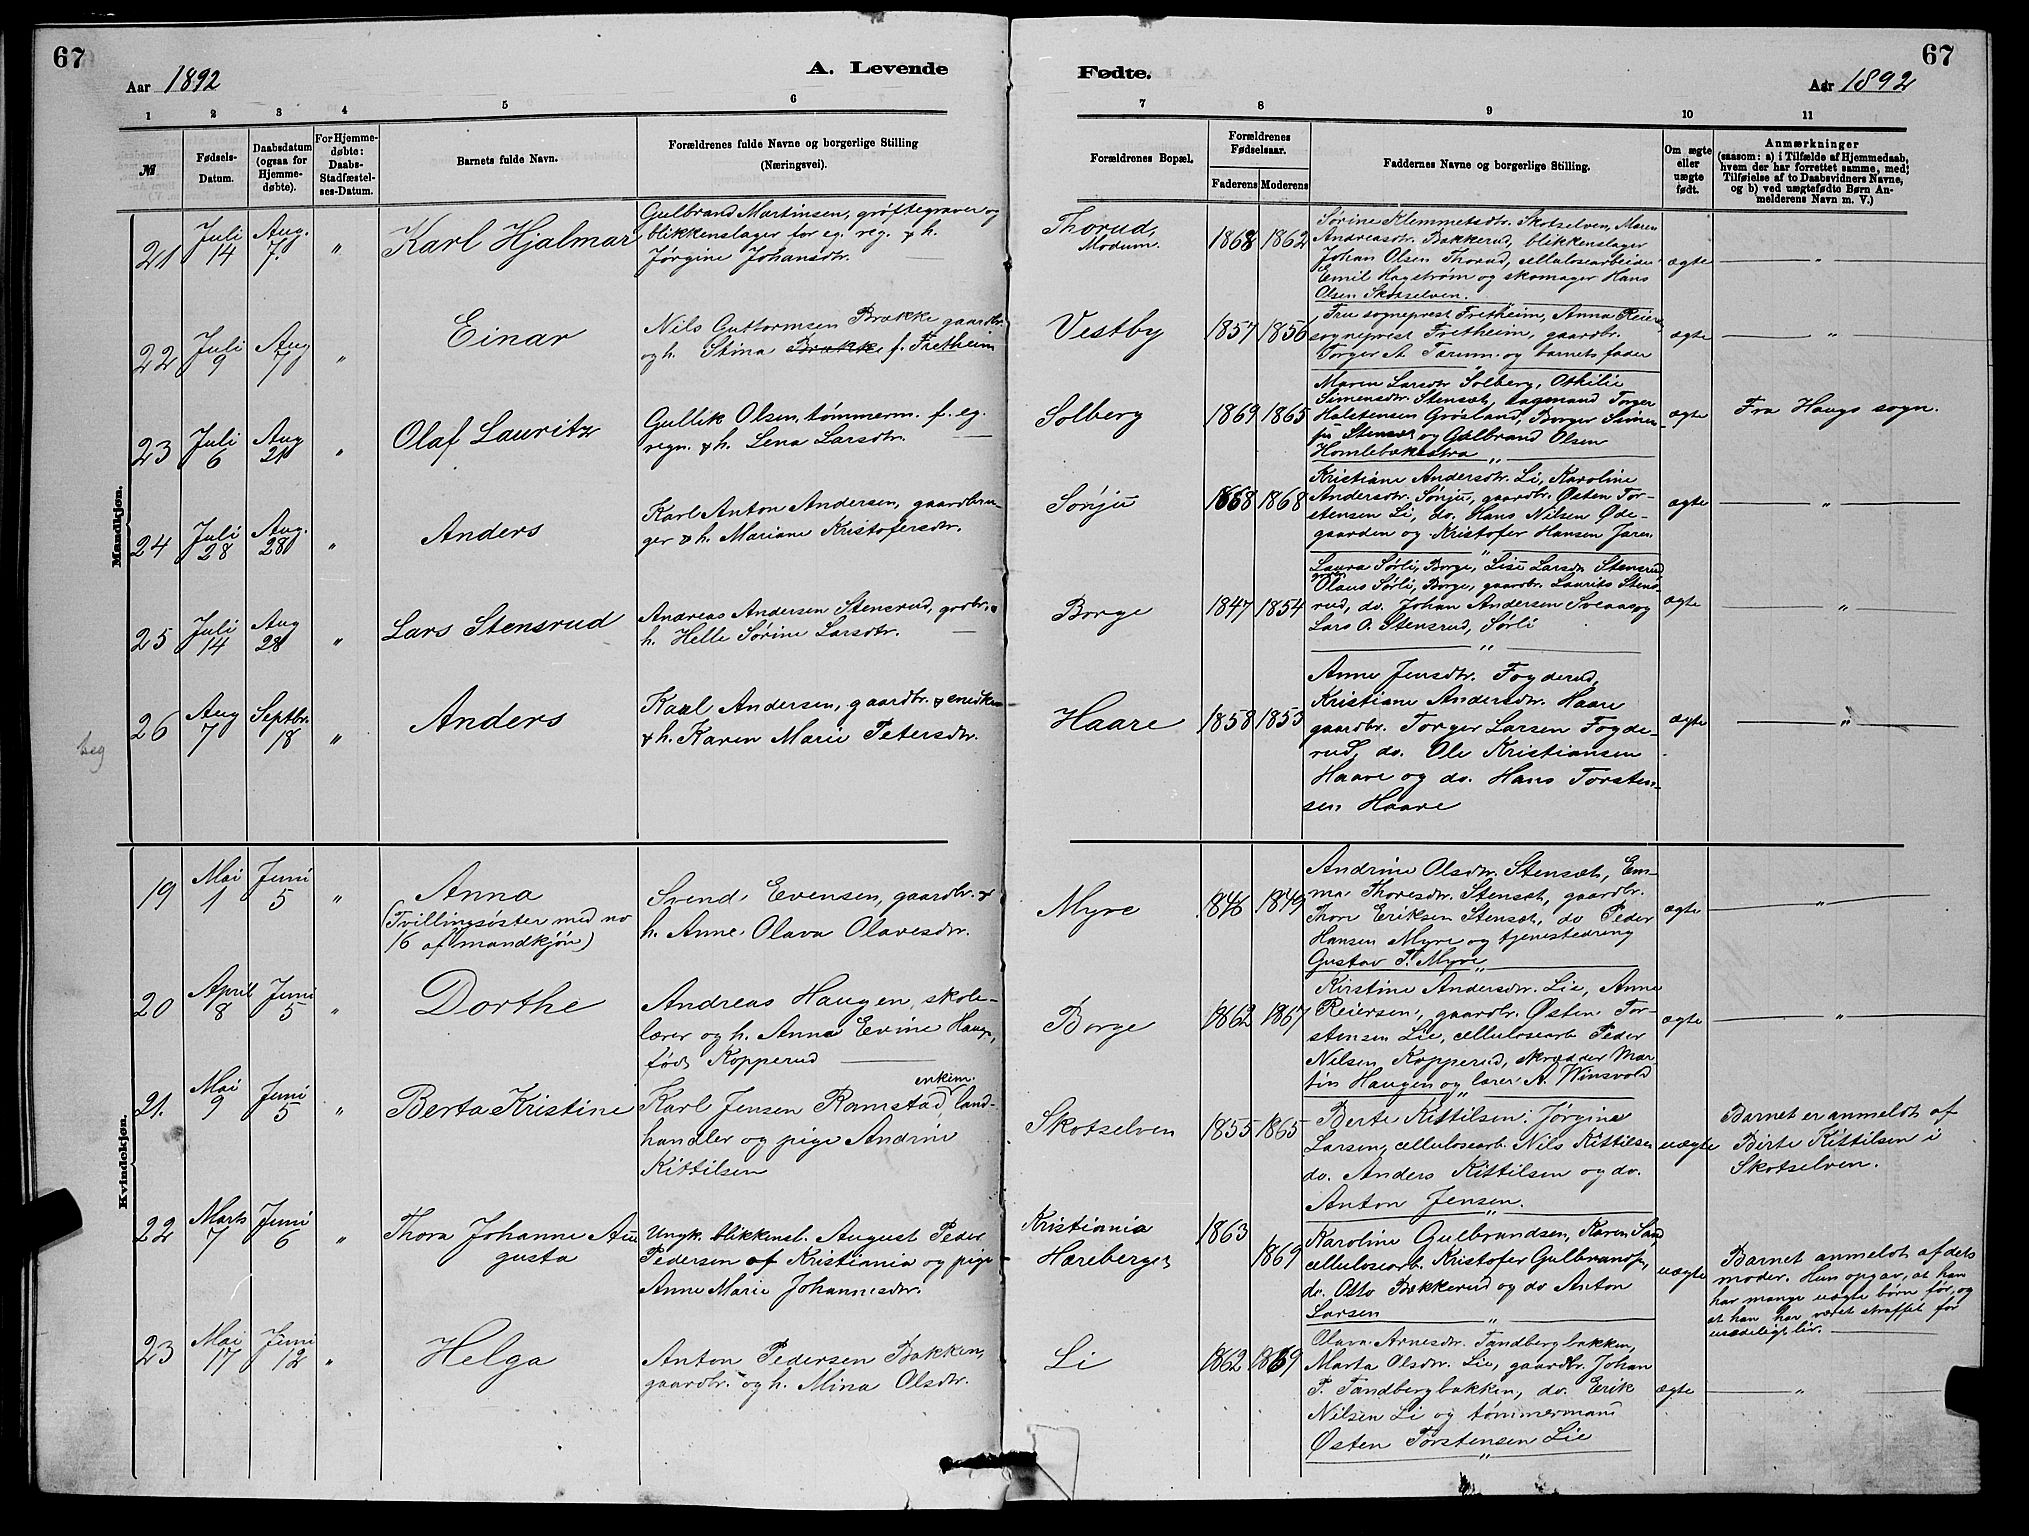 67
Aar 1892
A. Levende
Fødte.
Aar 1892
67
1 2 3 4 5 6 7 8 9 10 11
№
Fødsels-
Datum.
Daabsdatum
(ogsaa for
Hjemme-
døbte).
For Hjemme-
døbte:
Daabs-
Stadfæstel-
ses-Datum.
Barnets fulde Navn.
Forældrenes fulde Navne og borgerlige Stilling
(Næringsvei).
Forældrenes Bopæl.
Forældrenes
Fødselsaar.
Faderens Moderens
Faddernes Navne og borgerlige Stilling.
Om ægte
eller
uægte
født.
Anmærkninger
(saasom: a) i Tilfælde af Hjemmedaab,
hvem der har forrettet samme, med
Tilføielse af to Daabsvidners Navne,
og b) ved uægtefødte Børn An-
melderens Navn m. V.)
Mandkjøn.
21
Juli
14
Aug.
7.
"
Karl Hjalmar
Gulbrand Martinsen, grøftegraver og
blikkenslager for eg. reg. & h.
Jørgine Johansdtr.
Thorud,
Modum.
1868 1862
Sørine Klemmetsdtr. Skotselven, Maren
Andreasdtr. Bakkerud, blikkenslager
Johan Olsen Thorud, cellulosearbeider
Emil Hagstrøm og skomager Hans
Olsen Skotselven.
ægte
"
22
Juli
9
Aug
7
"
Einar
Nils Guttormsen Brække gaardbr.
og h. Stina Brække f. Fretheim
Vestby
1857 1856
Fru sogneprest Fretheim, Anna Reier
sogneprest Fretheim, gaardbr.
Torger A. Tærum og barnets fader
ægte
"
23
Juli
6
Aug
21
"
Olaf Lauritz
Gullik Olsen, tømmerm. f. eg.
regn. & h. Lena Larsdtr.
Solberg
1869 1865
Maren Larsdtr Solberg, Othilie
Simensdtr. Stensæt, dagmand Torger
Halstensen Grøsland, Borger Simen-
sen Stensæt og Gulbrand Olsen
Homlebækestra
"
ægte
Fra Haugs sogn.
24
Juli
28
Aug.
28
"
Anders
Karl Anton Andersen, gaardbru-
ger & h. Mariane Kristofersdtr.
Sønju
1868 1868
Kristiane Andersdtr. Li, Karoline
Andersdtr. Sønju, gaardbr. Østen Tor-
stensen Li, do. Hans Nilsen Øde-
gaarden og Kristofer Hansen Jaren.
"
ægte
"
25
Juli
14
Aug
28
"
Lars Stensrud
Andreas Andersen Stensrud, grdbr. &
h. Helle Sørine Larsdtr.
Borge
1847 1854
Laura Sørli, Borge, Lise Larsdtr Stensrud,
Olaus Sørli, Borge, gaardbr. Laurits Stens-
rud, do. Johan Andersen Sveaas og
Lars O. Stensrud, Sørli
"
ægte
"
26
Aug
7
Septbr.
18
"
Anders
Karl Andersen, gaardbr. & snedker
& h. Karen Marie Petersdtr.
Haare
1858 1853
Anne Jensdtr. Fogderud,
Kristiane Andersdtr. Haare
gaardbr. Torger Larsen Fogde-
rud, do. Ole Kristiansen
Haare og do. Hans Torsten-
sen Haare
ægte
"
Kvindekjøn.
19
Mai
1
Juni
5
"
Anna
(Tvillingsøster med no
16 af mandkjøn)
Svend Evensen, gaardbr. &
h. Anne Olava Olavesdtr.
Myre
1846 1849
Andrine Olsdtr. Stensæt, Em-
ma Thoresdtr. Stensæt, gaardbr.
Thore Eriksen Stensæt, do Peder
Hansen Myre og tjenestedreng
Gustav T. Myre
"
ægte
"
20
April
8
Juni
5
"
Dorthe
Andreas Haugen, skole-
lærer og h. Anne Evine Haug.,
født Kopperud
Borge
1862 1867
Kirstine Andersdtr. Lie, Anne
Reiersen, gaardbr. Østen Tor-
stensen Lie, cellulosearb Peder
Nilsen Kopperud, skrædder Mar-
tin Haugen og lærer A. Winsvold
"
ægte
"
21.
Mai
9
Juni
5
"
Berta Kristine
enkem.
Karl Jensen Ramstad, land-
handler og pige Andrine
Kittilsen
Skotselven
1855 1865
Berte Kittilsen, Jørgine
Larsen, cellulosearb. Nils Kittilsen
do. Anders Kittilsen og do.
Anton Jensen.
"
uægte
Barnet er anmeldt af
Birte Kittilsen i
Skotselven.
22
Marts
7
Juni
6
"
Thora Johanne Au
gusta
Ungk. blikkensl. August Peder
Pedersen af Kristiania og pige
Anne Marie Johannesdtr.
Kristiania
Hæreberget
1863
1869
Karoline Gulbrandsen, Karen Sand,
cellulosearb. Kristofer Gulbrands.,
do. Otto Bækkerud og do Anton
Larsen
"
uægte
Barnet anmeldt af dets
moder. Hun opgav, at han
har mange uægte børn før, og
at han har været straffet for
usædeligt liv.
23
Mai
17
Juni
12
"
Helga
Anton Pedersen Bakken,
gaardbr. og h. Mina Olsdtr.
Li
1862 1869
Olava Arnesdtr. Tandbergbakken,
Marta Olsdtr. Lie, gaardbr. Johan
P. Tandbergbakken, do. Erik
Nilsen Li og tømmermand
Østen Torstensen Lie
"
ægte
"